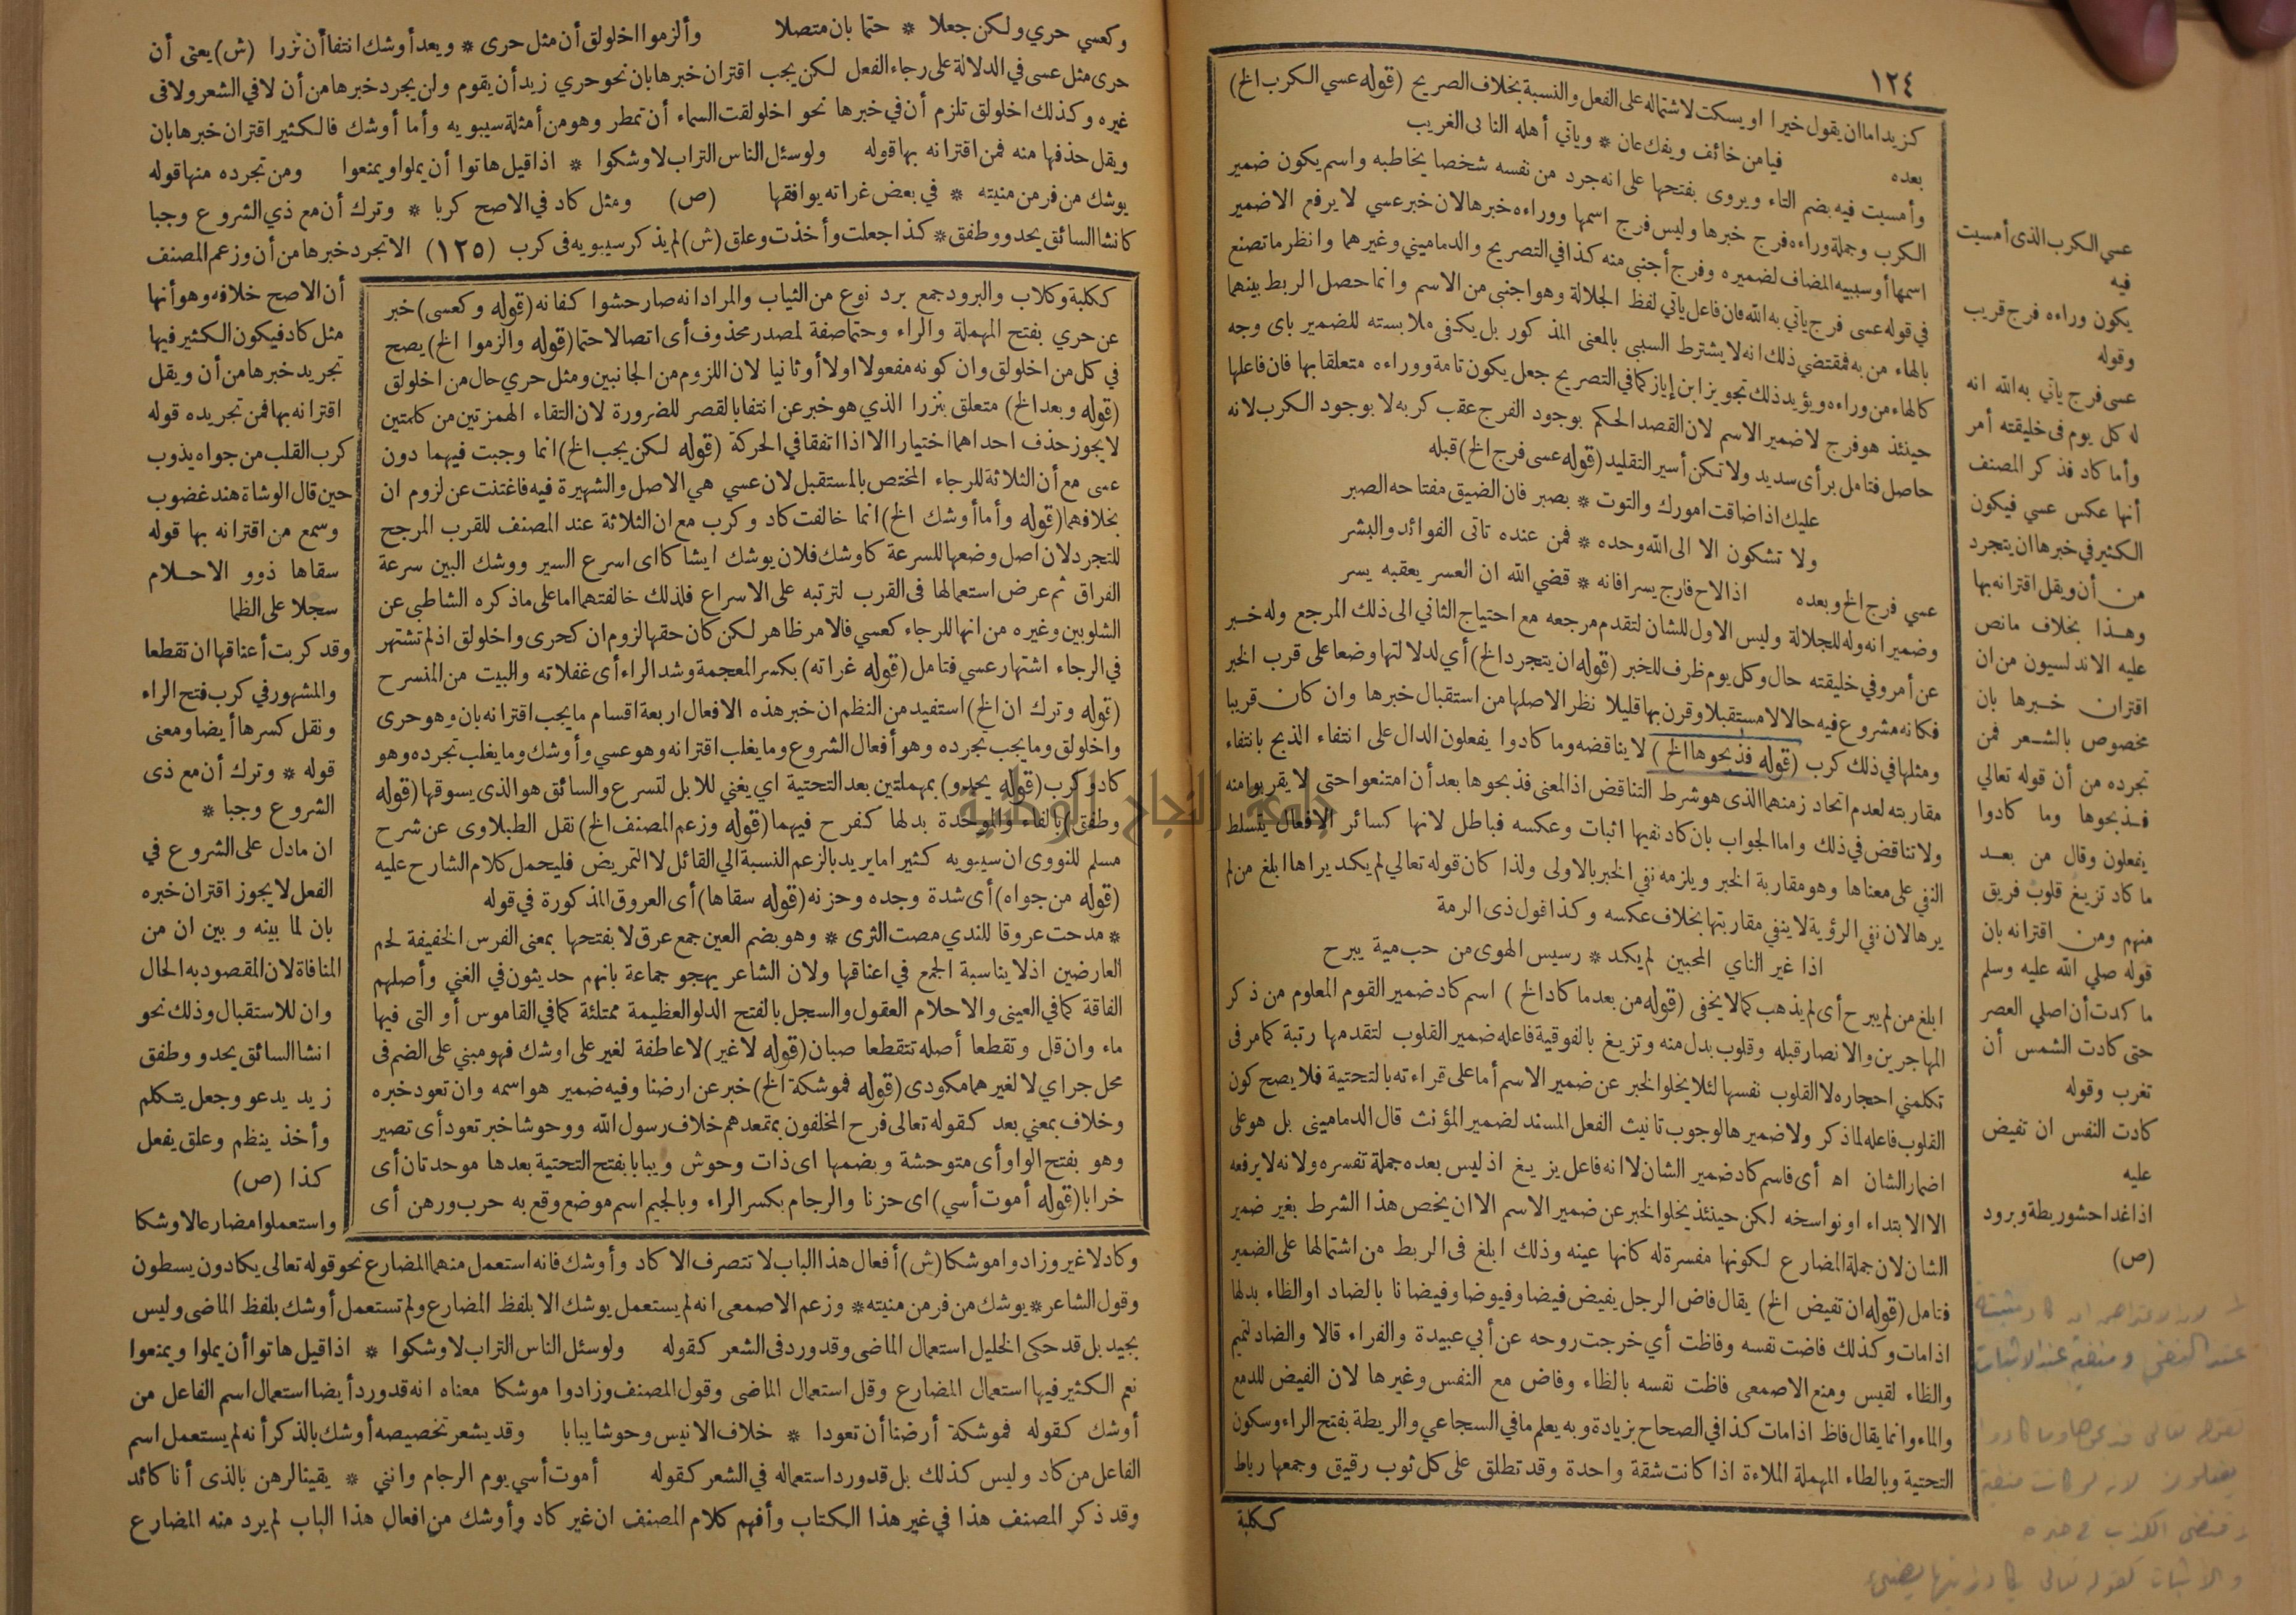 ١٢٤
كزيد اما ان يقول خيرا او يسكت لاشتماله على الفعل والنسبة بخلاف الصريح (قوله عسي الكرب الخ)
بعده فيامن خائف ويفك عان * ويأتي أهله النائى الغريب
وأمسيت فيه بضم التاء ويروى بفتحها على انه جرد من نفسه شخصا يخاطبه واسم يكون ضمير
الكرب وجملة وراءه فرج خبرها وليس فرج اسمها ووراءه خبرها لان خبر عسي لا يرفع الا ضمير
اسمها أو سببيه المضاف لضميره وفرج أجنبى منه كذا في التصريح والدماميني وغيرهما وانظر ما تصنع
في قوله عسى فرج يأتي به الله فان فاعل يأتي لفظ الجلالة وهو اجنبى من الاسم وانما حصل الربط بينهما
بالهاء من به فمقتضي ذلك انه لا يشترط السببى بالمعنى المذكور بل يكفى ملابسته للضمير باى وجه
كالهاء من وراءه ويؤيد ذلك تجويز ابن إياز كما في التصريح جعل يكون تامة ووراءه متعلقا بها فان فاعلها
حينئذ هو فرج لا ضمير الاسم لان القصد الحكم بوجود الفرج عقب كربه لا بوجود الكرب لانه
حاصل فتامل برأى سديد ولا تكن أسير التقليد (قوله عسى فرج الخ) قبله
عليك اذا ضاقت امورك والتوت * بصبر فان الضيق مفتاحه الصبر
ولا تشكون الا الى الله وحده * فمن عنده تاتى الفوائد والبشر
عسي فرج الخ وبعده اذا لاح فارج يسرا فانه * قضي الله ان العسر يعقبه يسر
وضمير انه وله للجلالة وليس الاول للشان لتقدم مرجعه مع احتياج الثاني الى ذلك المرجع وله خبر
عن أمر وفي خليقته حال وكل يوم ظرف للخبر (قوله ان يتجرد الخ) أي لدلالتها وضعا على قرب الخبر
فكانه مشروع فيه حالا لا مستقبلا وقرن بها قليلا نظرا لاصلها من استقبال خبرها وان كان قريبا
ومثلها في ذلك كرب (قوله فذبحوها الخ) لا يناقضه وما كادوا يفعلون الدال على انتفاء الذبح بانتفاء
مقاربته لعدم اتحاد زمنهما الذى هو شرط التناقض اذ المعنى فذبحوها بعد أن امتنعوا حتى لا يقربوا منه
ولا تناقض في ذلك واما الجواب بان كاد نفيها اثبات وعكسه فباطل لانها كسائر الافعال يتسلط
النفي على معناها وهو مقاربة الخبر ويلزمه نفي الخبر بالاولى ولذا كان قوله تعالي لم يكد يراها ابلغ من لم
يرها لان نفي الرؤية لا ينفي مقاربتها بخلاف عكسه وكذا قول ذى الرمة
اذا غير الناي المحبين لم يكد * رسيس الهوى من حب مية يبرح
ابلغ من لم يبرح أى لم يذهب كما لا يخفى (قوله من بعد ما كاد الخ) اسم كاد ضمير القوم المعلوم من ذكر
المهاجرين والانصار قبله وقلوب بدل منه وتزيغ بالفوقية فاعله ضمير القلوب لتقدمها رتبة كما مر فى
تكلمني احجاره لا القلوب نفسها لئلا يخلو الخبر عن ضمير الاسم أما على قراءته بالتحتية فلا يصح كون
القلوب فاعله لما ذكر ولا ضميرها لوجوب تانيث الفعل المسند لضمير المؤنث قال الدماميني بل هو على
اضمار الشان اه أى فاسم كاد ضمير الشان لا انه فاعل يزيغ اذ ليس بعده جملة تفسره ولانه لا يرفعه
الا الابتداء او نواسخه لكن حينئذ يخلو الخبر عن ضمير الاسم الا ان يخص هذا الشرط بغير ضمير
الشان لان جملة المضارع لكونها مفسرة له كانها عينه وذلك ابلغ فى الربط من اشتمالها على الضمير
فتامل (قوله ان تفيض الخ) يقال فاض الرجل يفيض فيضا وفيوضا وفيضانا بالضاد او الظاء بدلها
اذا مات وكذلك فاضت نفسه وفاظت أي خرجت روحه عن أبي عبيدة والفراء قالا والضاد لتميم
والظاء لقيس ومنع الاصمعى فاظت نفسه بالظاء وفاض مع النفس وغيرها لان الفيض للدمع
والماء وانما يقال فاظ اذا مات كذا في الصحاح بزيادة وبه يعلم ما في السجاعي والريطة بفتح الراء وسكون
التحتية وبالطاء المهملة الملاءة اذا كانت شقة واحدة وقد تطلق على كل ثوب رقيق وجمعها رياط
ككلبة
عسي الكرب الذى أمسيت
فيه
يكون وراءه فرج قريب
وقوله
عسى فرج يأتي به الله انه
له كل يوم فى خليقته أمر
وأما كاد فذكر المصنف
أنها عكس عسي فيكون
الكثير في خبرها ان يتجرد
من أن ويقل اقترانه بها
وهذا بخلاف ما نص
عليه الاندلسيون من ان
اقتران خبرها بان
مخصوص بالشعر فمن
تجرده من أن قوله تعالي
فذبحوها وما كادوا
يفعلون وقال من بعد
ما كاد تزيغ قلوب فريق
منهم ومن اقترانه بان
قوله صلي الله عليه وسلم
ما كدت أن اصلي العصر
حتى كادت الشمس أن
تغرب وقوله
كادت النفس ان تفيض
عليه
اذ غدا حشو ريطة وبرود
(ص)
وكعسي حري ولكن جعلا * حتما بان متصلا
وألزموا اخلولق أن مثل حرى * وبعد أوشك انتفا أن نزرا (ش) يعنى أن
حرى مثل عسى في الدلالة على رجاء الفعل لكن يجب اقتران خبرها بان نحو حري زيد أن يقوم ولن يجرد خبرها من أن لا في الشعر ولا فى
غيره وكذلك اخلولق تلزم أن في خبرها نحو اخلولقت السماء أن تمطر وهو من أمثلة سيبويه وأما أوشك فالكثير اقتران خبرها بان
ويقل حذفها منه فمن اقترانه بها قوله ولو سئل الناس التراب لاوشكوا * اذا قيل هاتوا أن يملوا ويمنعوا ومن تجرده منها قوله
يوشك من فر من منيته * في بعض غراته يوافقها (ص) ومثل كاد في الاصح كربا * وترك أن مع ذي الشروع وجبا
كانشا السائق يحدو وطفق * كذا جعلت وأخذت وعلق (ش) لم يذكر سيبويه فى كرب (١٢٥) الا تجرد خبرها من أن وزعم المصنف
أن الاصح خلافه وهو أنها
مثل كاد فيكون الكثير فيها
تجريد خبرها من أن ويقل
اقترانه بها فمن تجريده قوله
كرب القلب من جواه يذوب
حين قال الوشاة هند غضوب
وسمع من اقترانه بها قوله
سقاها ذوو الاحلام
سجلا على الظما
وقد كربت أعناقها ان تقطعا
والمشهور في كرب فتح الراء
ونقل كسرها أيضا ومعنى
قوله * وترك أن مع ذى
الشروع وجبا *
ان ما دل على الشروع في
الفعل لا يجوز اقتران خبره
بان لما بينه وبين ان من
المنافاة لان المقصود به الحال
وان للاستقبال وذلك نحو
انشا السائق يحدو وطفق
زيد يدعو وجعل يتكلم
وأخذ ينظم وعلق يفعل
كذا (ص)
واستعملوا مضارعا لاوشكا
ككلبة وكلاب والبرود جمع برد نوع من الثياب والمراد انه صار حشوا كفانه (قوله وكعسى) خبر
عن حري بفتح المهملة والراء وحتما صفة لمصدر محذوف أى اتصالا حتما (قوله والزموا الخ) يصح
في كل من اخلولق وان كونه مفعولا اولا أو ثانيا لان اللزوم من الجانبين ومثل حري حال من اخلولق
(قوله وبعد الخ) متعلق بنزرا الذي هو خبر عن انتفا بالقصر للضرورة لان التقاء الهمزتين من كلمتين
لا يجوز حذف احداهما اختيارا الا اذا اتفقا في الحركة (قوله لكن يجب الخ) انما وجبت فيهما دون
عسى مع أن الثلاثة للرجاء المختص بالمستقبل لان عسي هي الاصل والشهيرة فيه فاغتنت عن لزوم ان
بخلافهما (قوله وأما أوشك الخ) انما خالفت كاد وكرب مع ان الثلاثة عند المصنف للقرب المرجح
للتجرد لان اصل وضعها للسرعة كاوشك فلان يوشك ايشاكا اى اسرع السير ووشك البين سرعة
الفراق ثم عرض استعمالها فى القرب لترتبه على الاسراع فلذلك خالفتهما اما على ما ذكره الشاطبى عن
الشلوبين وغيره من انها للرجاء كعسي فالامر ظاهر لكن كان حقها لزوم ان كحرى واخلولق اذ لم تشتهر
في الرجاء اشتهار عسي فتامل (قوله غراته) بكسر المعجمة وشد الراء أى غفلاته والبيت من المنسرح
(قوله وترك ان الخ) استفيد من النظم ان خبر هذه الافعال اربعة اقسام ما يجب اقترانه بان وهو حرى
واخلولق وما يجب تجرده وهو أفعال الشروع وما يغلب اقترانه وهو عسي وأوشك وما يغلب تجرده وهو
كاد وكرب (قوله يحدو) بمهملتين بعد التحتية اي يغني للابل لتسرع والسائق هو الذى يسوقها (قوله
وطفق) بالفاء والموحدة بدلها كفرح فيهما (قوله وزعم المصنف الخ) نقل الطبلاوى عن شرح
مسلم للنووى ان سيبويه كثيرا ما يريد بالزعم النسبة الي القائل لا التمريض فليحمل كلام الشارح عليه
(قوله من جواه) أى شدة وجده وحزنه (قوله سقاها) أى العروق المذكورة في قوله
* مدحت عروقا للندي مصت الثرى * وهو بضم العين جمع عرق لا بفتحها بمعنى الفرس الخفيفة لحم
العارضين اذ لا يناسبة الجمع في اعناقها ولان الشاعر يهجو جماعة بانهم حديثون في الغني وأصلهم
الفاقة كما في العينى والاحلام العقول والسجل بالفتح الدلو العظيمة ممتلئة كما في القاموس أو التى فيها
ماء وان قل وتقطعا أصله تتقطعا صبان (قوله لا غير) لا عاطفة لغير على اوشك فهو مبني على الضم فى
محل جر اي لا لغيرهما مكودى (قوله فموشكة الخ) خبر عن ارضنا وفيه ضمير هو اسمه وان تعود خبره
وخلاف بمعني بعد كقوله تعالى فرح المخلفون بمقعدهم خلاف رسول الله ووحوشا خبر تعود أى تصير
وهو بفتح الواو أى متوحشة وبضمها اى ذات وحوش ويبابا بفتح التحتية بعدها موحدتان أى
خرابا (قوله أموت أسي) اى حزنا والرجام بكسر الراء وبالجيم اسم موضع وقع به حرب ورهن أى
وكاد لا غير وزادوا موشكا (ش) أفعال هذا الباب لا تتصرف الا كاد وأوشك فانه استعمل منهما المضارع نحو قوله تعالى يكادون يسطون
وقول الشاعر * يوشك من فر من منيته * وزعم الاصمعى انه لم يستعمل يوشك الا بلفظ المضارع ولم تستعمل أوشك بلفظ الماضى وليس
بجيد بل قد حكى الخليل استعمال الماضى وقد ورد فى الشعر كقوله ولو سئل الناس التراب لاوشكوا * اذا قيل هاتوا أن يملوا ويمنعوا
نعم الكثير فيها استعمال المضارع وقل استعمال الماضى وقول المصنف وزادوا موشكا معناه انه قد ورد أيضا استعمال اسم الفاعل من
أوشك كقوله فموشكة أرضنا أن تعودا * خلاف الانيس وحوشا يبابا وقد يشعر تخصيصه أوشك بالذكر أنه لم يستعمل اسم
الفاعل من كاد وليس كذلك بل قد ورد استعماله في الشعر كقوله أموت أسي يوم الرجام وانني * يقينا لرهن بالذى أنا كائد
وقد ذكر المصنف هذا في غير هذا الكتاب وأفهم كلام المصنف ان غير كاد وأوشك من افعال هذا الباب لم يرد منه المضارع
جامعة النجاح الوطنية